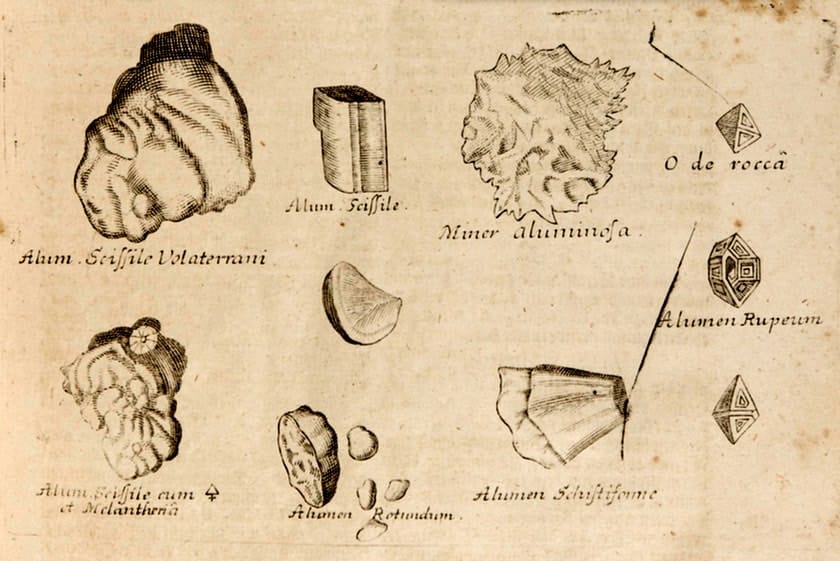 O de roccâ
Alum. Scissile.
Miner aluminosa.
Alum. Scissile Volaterrani
Alumen Rupeum
Alum. Scissile cum 🜍
et Melantheriâ
Alumen Rotundum.
Alumen Schistiforme